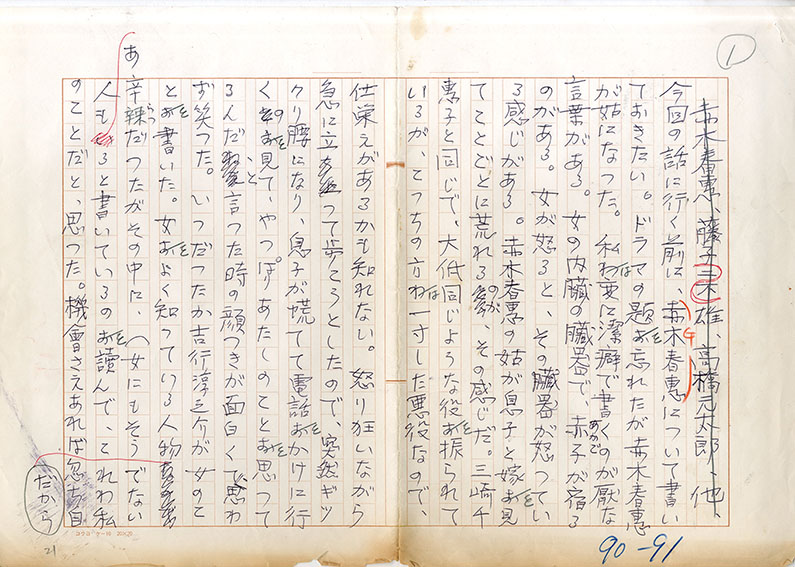 1
赤木春惠、藤子不二雄、高橋元太郎、他、
今回の話に行く前に、赤木春惠について書い
ておきたい。ドラマの題お忘れたが赤木春惠
が姑になつた。私わ妻に潔癖で書くのが厭な
言葉がある。女の内臓の臓器で、赤子が宿る
のがある。女が怒ると、その臓器が怒つてい
る感じがある。赤木春惠の姑が息子と嫁お見
てことごとに荒れるのが、その感じだ。三崎千
惠子と同じで、大低同じような役お振られて
いるが、こつちの方わ一寸した悪役なので、
仕栄えがあるかも知れない。怒り狂いながら
急に立つて歩こうとしたので、突然ギツ
クリ腰になり、息子が慌てて電話おかけに行
くのお見て、やつぱりあたしのことお思つて
るんだ、と言つた時の顔つきが面白くて思わ
ず笑つた。いつだつたか吉行淳之介が女のこ
とお書いた。女およく知つている人物だから
あ辛辣だつたがその中に、(女にもそうでない
人もあると書いているのお讀んで、これわ私
のことだと、思つた。機會さえあれば忽ち自
コクヨ ケー10 20×20
21
90-91